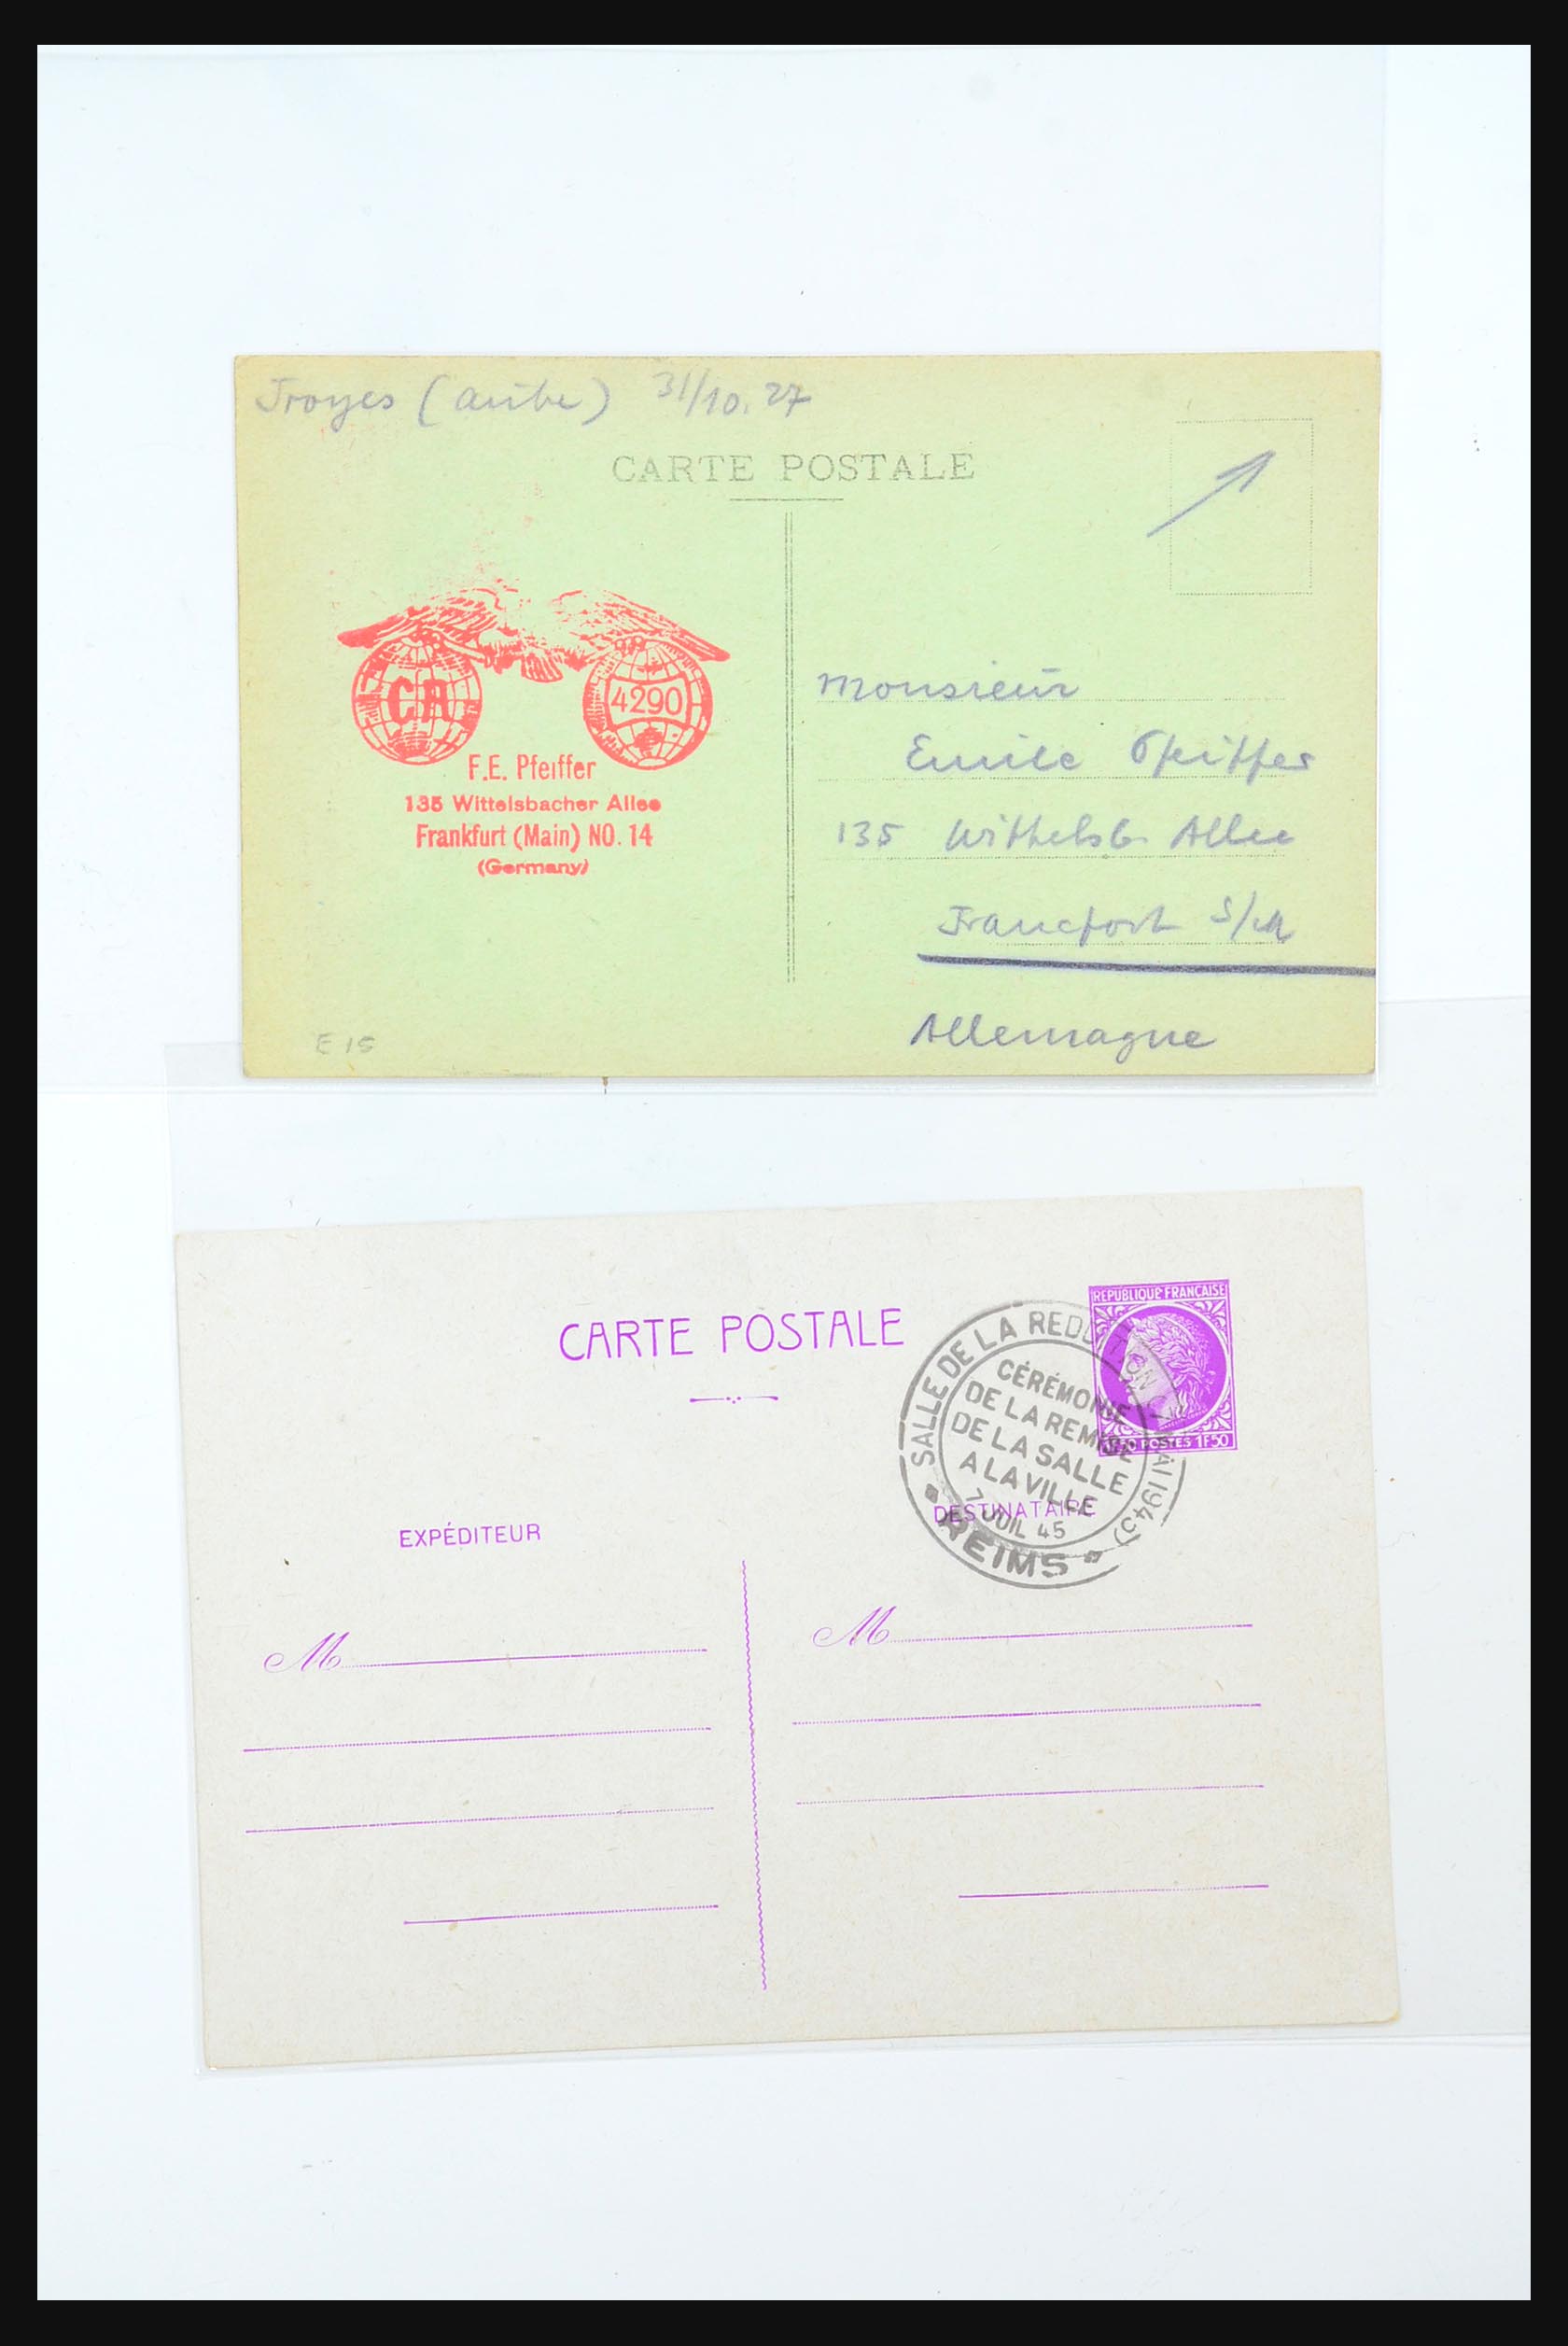 Troyes (Aube) 31/10.27
CARTE POSTALE
CA
4290
F.E. Pfeiffer
135 Wittelsbacher Allee
Frankfurt (Main) NO. 14
(Germany)
Monsieur
Emile Pfeiffer
135 Wittelsb. Allee
Francfort s/M
Allemagne
E 15
REPUBLIQUE FRANÇAISE
POSTES 1F50
CARTE POSTALE
SALLE DE LA REDDITION MAI 1945)
CÉRÉMONIE
DE LA REMISE
DE LA SALLE
A LA VILLE
7 JUIL 45
REIMS
EXPÉDITEUR
DESTINATAIRE
M
M